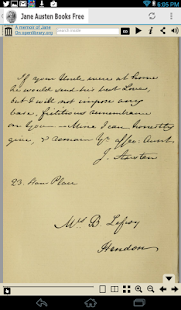 6:05 PM
Jane Austen Books Free
A memoir of Jane
On openlibrary.org
If your Uncle were at home
he would send his best Love,
but I will not impose any
base, fictitious remembrance
on you.—Mine I can honestly
give, & remain Yr affec: Aunt,
J. Austen
23. Hans Place
Mrs. B. Lefroy
Hendon